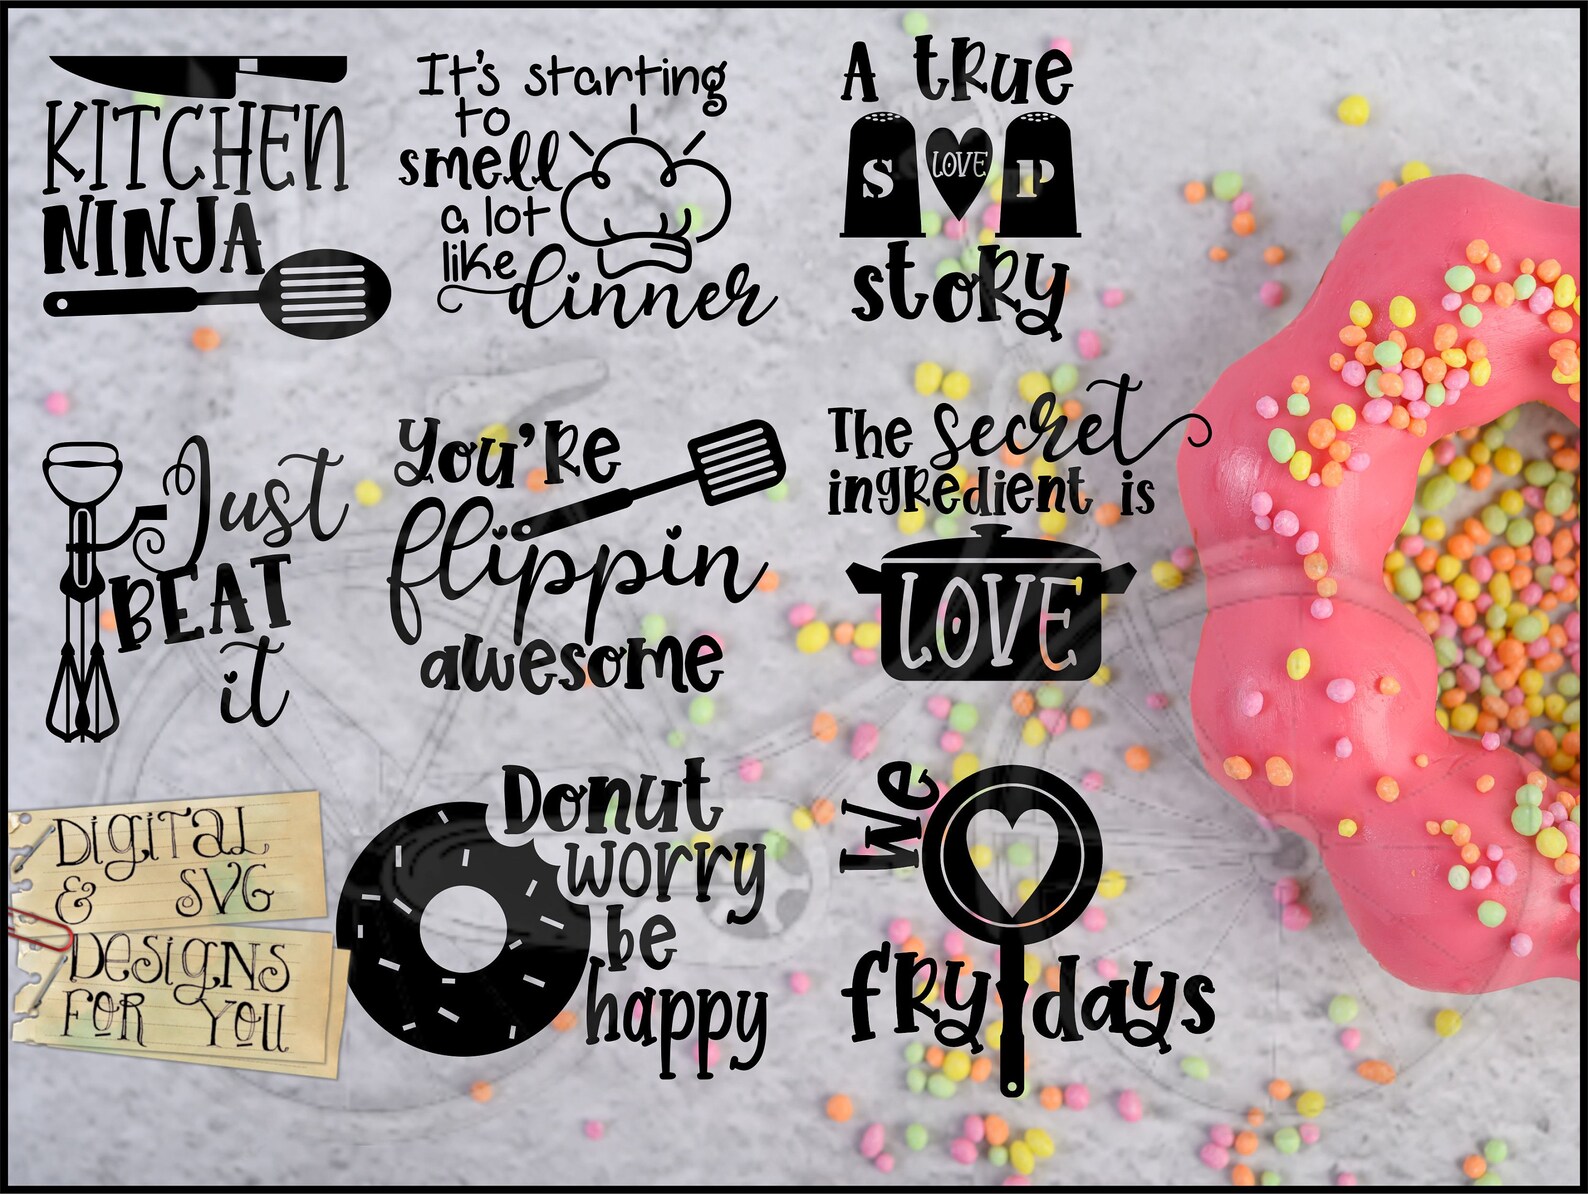 KITCHEN
NINJA
It's starting
to
smell
a lot
like
dinner
A true
S LOVE P
story
Just
BEAT
it
You're
flippin
awesome
The secret
ingredient is
LOVE
DIGITAL
& SVG
DESIGNS
FOR YOU
Donut
worry
be
happy
We
frydays